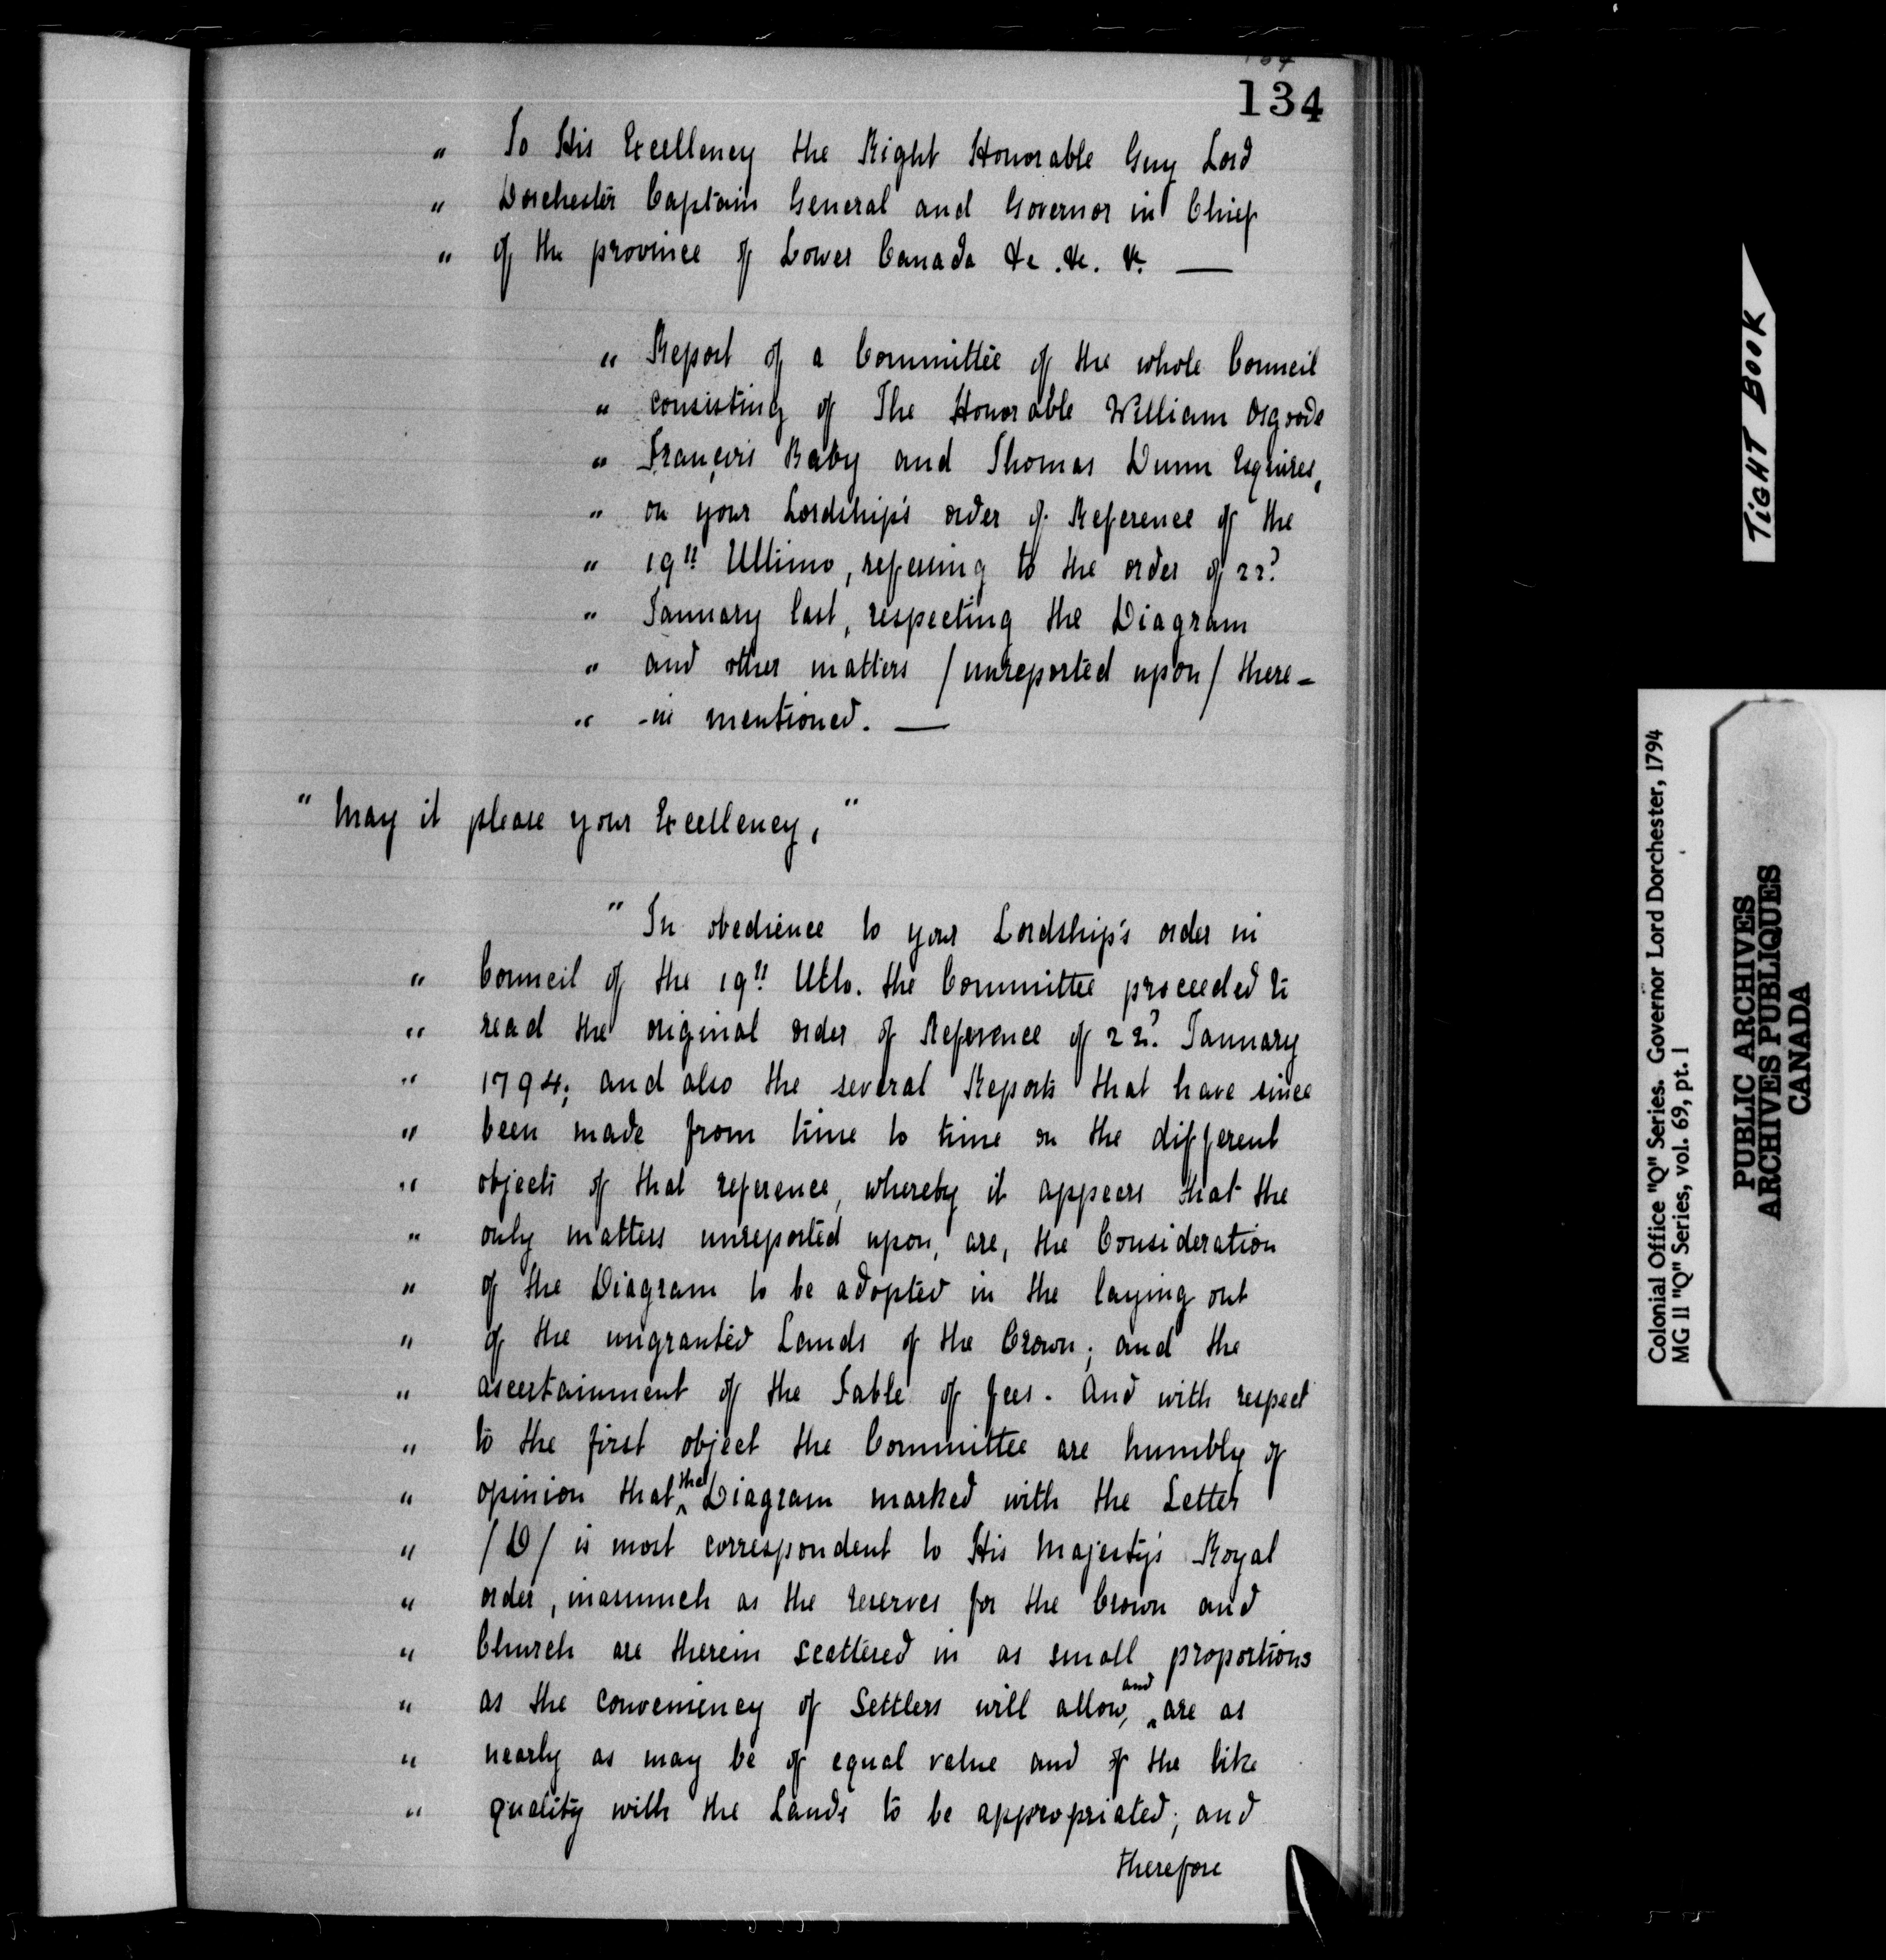 134
" To His Excellency the Right Honorable Guy Lord
" Dorchester Captain General and Governor in Chief
" of the province of Lower Canada &c. &c. &. —
" Report of a Committee of the whole Council
" consisting of The Honorable William Osgoode
" François Baby and Thomas Dunn Esquires,
" on your Lordship's order of Reference of the
" 19th Ultimo, refering to the order of 22d
" January last, respecting the Diagram
" and other matters / unreported upon / there-
" -in mentioned. —
" May it please your Excellency, "
" In obedience to your Lordship's order in
" Council of the 19th Ulto. the Committee proceeded to
" read the original order of Reference of 22d January
" 1794; and also the several Reports that have since
" been made from time to time on the different
" objects of that reference, whereby it appears that the
" only matters unreported upon, are, the Consideration
" of the Diagram to be adopted in the laying out
" of the ungranted Lands of the Crown; and the
" ascertainment of the Table of fees. And with respect
" to the first object the Committee are humbly of
" opinion that the Diagram marked with the Letter
" /D/ is most correspondent to His Majesty's Royal
" order, inasmuch as the reserves for the Crown and
" Church are therein scattered in as small proportions
" as the conveniency of Settlers will allow, and are as
" nearly as may be of equal value and of the like
" quality with the Lands to be appropriated; and
therefore
TIGHT BOOK
Colonial Office "Q" Series. Governor Lord Dorchester, 1794
MG 11 "Q" Series, vol. 69, pt. 1
PUBLIC ARCHIVES
ARCHIVES PUBLIQUES
CANADA